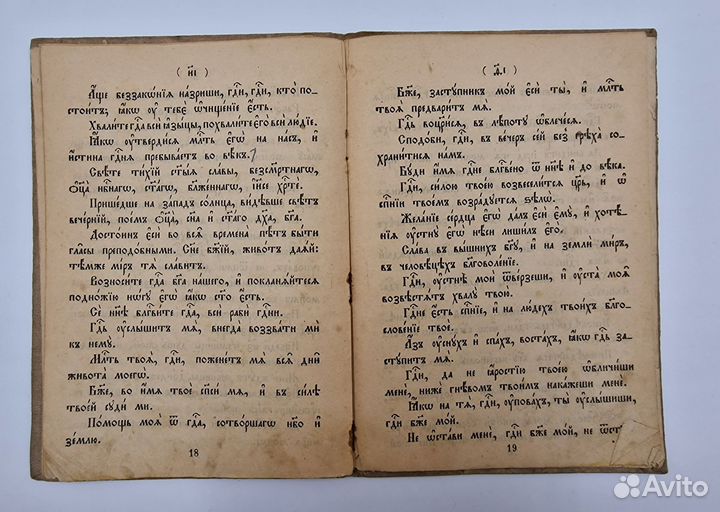 ( и҃і )
А҆́ще беззакѡ́нїѧ на́зриши, гдⷭ҇и, гдⷭ҇и, кто̀ по-
стои́тъ; ꙗ҆́кѡ ᲂу҆ тебє̀ ѡ҆чище́нїе є҆́сть.
Хвали́те гдⷭ҇а всѝ ꙗ҆зы́цы, похвали́те є҆го̀ всѝ лю́дїе.
Ꙗ҆́кѡ ᲂу҆тверди́сѧ млⷭ҇ть є҆гѡ̀ на на́съ, и҆
и҆́стина гдⷭ҇нѧ пребыва́етъ во вѣ́къ.
Свѣ́те ти́хїй ст҃ы́ѧ сла́вы, безсме́ртнагѡ,
ѻ҆ц҃а̀ нбⷭ҇нагѡ, ст҃а́гѡ, блаже́ннагѡ, і҆и҃се хрⷭ҇тѐ.
Прише́дше на за́падъ со́лнца, ви́дѣвше свѣ́тъ
вече́рнїй, пое́мъ ѻ҆ц҃а̀, сн҃а и҆ ст҃а́го дх҃а, бг҃а.
Досто́инъ є҆сѝ во всѧ̑ времена̀ пѣ́тъ бы́ти
гла́сы преподо́бными. Сн҃е бж҃їй, живо́тъ даѧ́й:
тѣ́мже мі́ръ тѧ̀ сла́витъ.
Возноси́те гдⷭ҇а бг҃а на́шего, и҆ покланѧ́йтесѧ
подно́жїю но́гꙋ є҆гѡ̀ ꙗ҆́кѡ ст҃о є҆́сть.
Сѐ нн҃ѣ блгⷭ҇ви́те гдⷭ҇а, всѝ рабѝ гдⷭ҇ни.
Гдⷭ҇ь ᲂу҆слы́шитъ мѧ̀, внегда̀ воззва́ти мѝ
къ немꙋ̀.
Млⷭ҇ть твоѧ̀, гдⷭ҇и, пожене́тъ мѧ̀ всѧ̑ дни̑
живота̀ моегѡ̀.
Бж҃е, во и҆́мѧ твоѐ сп҃си́ мѧ, и҆ въ си́лѣ
твое́й сꙋди́ ми.
По́мощь моѧ̀ ѿ гдⷭ҇а, сотво́ршагѡ нб҃о и҆
зе́млю.
18
( ѳ҃і )
Бж҃е, застꙋ́пникъ мо́й є҆сѝ ты̀, и҆ млⷭ҇ть
твоѧ̀ предвари́тъ мѧ̀.
Гдⷭ҇ь воцр҃и́сѧ, въ лѣ́потꙋ ѡ҆блече́сѧ.
Сподо́би, гдⷭ҇и, въ ве́черъ се́й без̾ грѣха̀ со-
храни́тисѧ на́мъ.
Бꙋ́ди и҆́мѧ гдⷭ҇не блгⷭ҇ве́но ѿ нн҃ѣ и҆ до вѣ́ка.
Гдⷭ҇и, си́лою твое́ю возвесели́тсѧ цр҃ь, и҆ ѡ҆
сп҃се́нїи твое́мъ возра́дꙋетсѧ ѕѣлѡ̀.
Жела́нїе се́рдца є҆гѡ̀ да́лъ є҆сѝ є҆мꙋ̀, и҆ хотѣ́-
нїѧ ᲂу҆стнꙋ̀ є҆гѡ̀ нѣ́си лиши́лъ є҆го̀.
Сла́ва въ вы́шнихъ бг҃ꙋ, и҆ на землѝ ми́ръ,
въ человѣ́цѣхъ благоволе́нїе.
Гдⷭ҇и, ᲂу҆стнѣ̀ моѝ ѿве́рзеши, и҆ ᲂу҆ста̀ моѧ̑
возвѣстѧ́тъ хвалꙋ̀ твою̀.
Гдⷭ҇не є҆́сть сп҃се́нїе, и҆ на лю́дехъ твои́хъ блг҃о-
слове́нїе твоѐ.
А҆́зъ ᲂу҆снꙋ́хъ и҆ спа́хъ, воста́хъ, ꙗ҆́кѡ гдⷭ҇ь за-
стꙋ́питъ мѧ̀.
Гдⷭ҇и, да не ꙗ҆́ростїю твое́ю ѡ҆бличи́ши
менѐ, нижѐ гнѣ́вомъ твои́мъ нака́жеши менѐ.
Ꙗ҆́кѡ на тѧ̀, гдⷭ҇и, ᲂу҆пова́хъ, ты̀ ᲂу҆слы́шиши,
гдⷭ҇и бж҃е мо́й.
Не ѡ҆ста́ви менѐ, гдⷭ҇и бж҃е мо́й, не ѿстꙋ
19
Avito